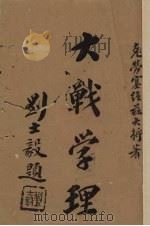 克勞塞維茲大將著
大戰学理
劉士毅題